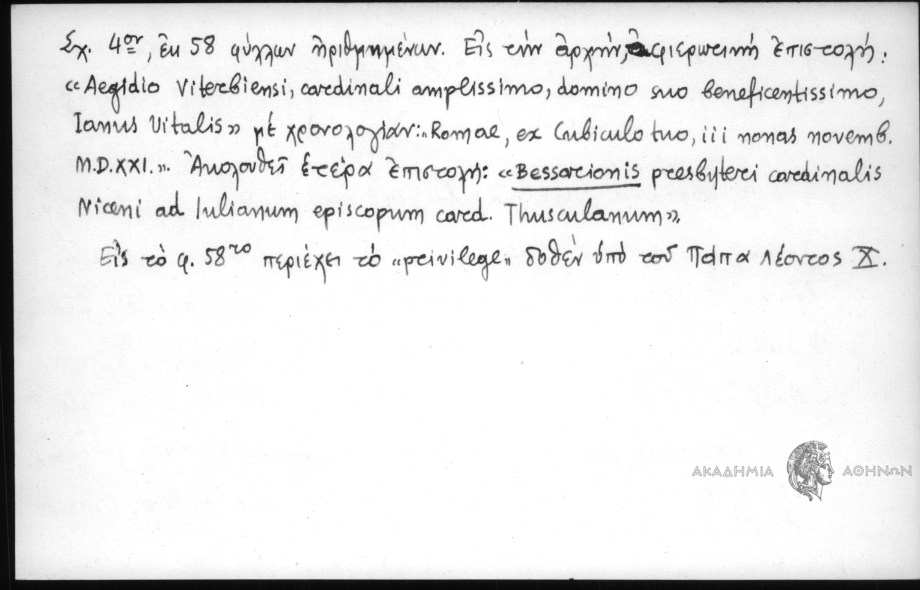 Σχ. 4ον, ἐκ 58 φύλλων ἠριθμημένων. Εἰς τὴν ἀρχήν, ἀφιερωτινὴ ἐπιστολή:
«Aegidio Viterbiensi, cardinali amplissimo, domino suo beneficentissimo,
Ianus Vitalis» μὲ χρονολογίαν: «Romae, ex Cubiculo tuo, iii nonas novemb.
M.D.XXI.». Ἀκολουθεῖ ἑτέρα ἐπιστολή: «Bessarionis presbyteri cardinalis
Niceni ad Iulianum episcopum card. Thusculanum».
Εἰς τὸ φ. 58ro περιέχει τὸ «privilege» δοθὲν ὑπὸ τοῦ Πάπα Λέοντος X.
ΑΚΑΔΗΜΙΑ ΑΘΗΝΩΝ